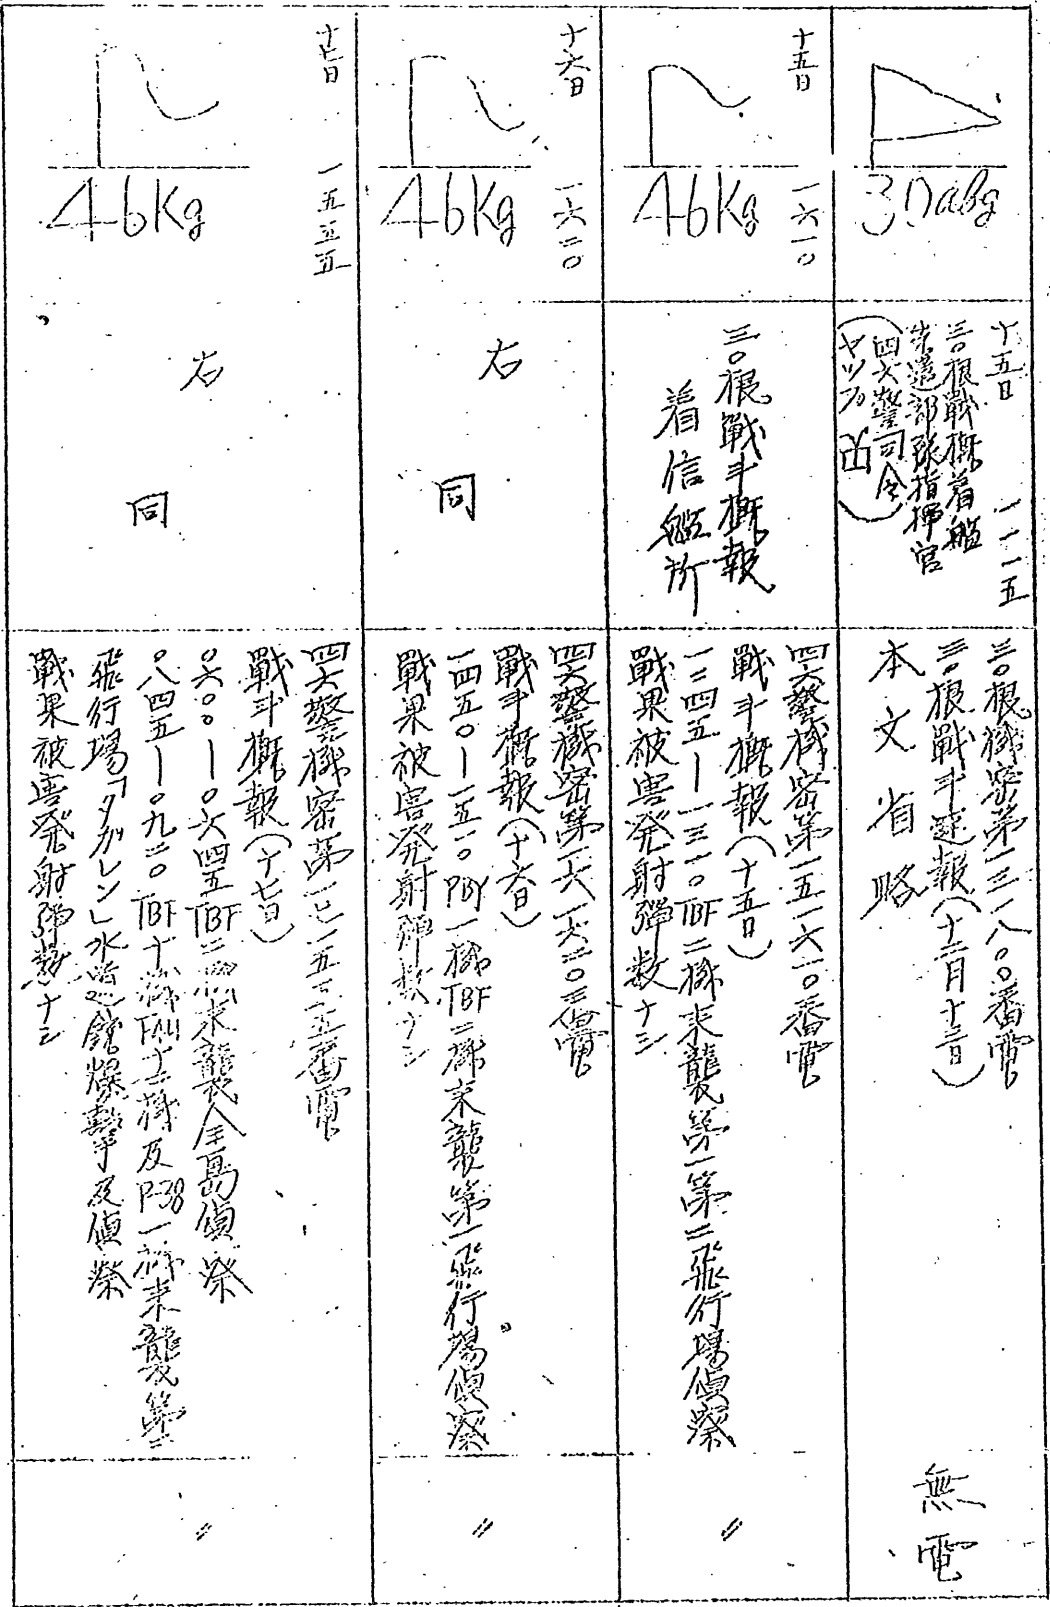 十五日 一一一五
三〇根戰概着艦
先遣部隊指揮官
(四六警司令)
ヤップ
三〇根機密第一三一八〇〇番電
三〇根戰斗速報(十二月十三日)
本文省略
無電
十五日
一六一〇
46Kg
三〇根戰斗概報
着信艦所
四六警機密第一五一六一〇番電
戰斗概報(十五日)
一二四五—一三一〇TBF二機来襲第一第二飛行場偵察
戰果被害発射彈数ナシ
〃
十六日
一六二〇
46Kg
右同
四六警機密第一六一六二〇番電
戰斗概報(十六日)
一四五〇—一五一〇PBY一機TBF二機来襲第一飛行場偵察
戰果被害発射彈数ナシ
〃
十七日
一五三五
46Kg
右同
四六警機密第一七一五三五番電
戰斗概報(十七日)
〇六〇〇—〇六四五TBF二機来襲全島偵察
〇八四五—〇九二〇TBF十機F4U十二機及P-38一機来襲第二
飛行場「タガレン」水道館爆擊及偵察
戰果被害発射彈数ナシ
〃